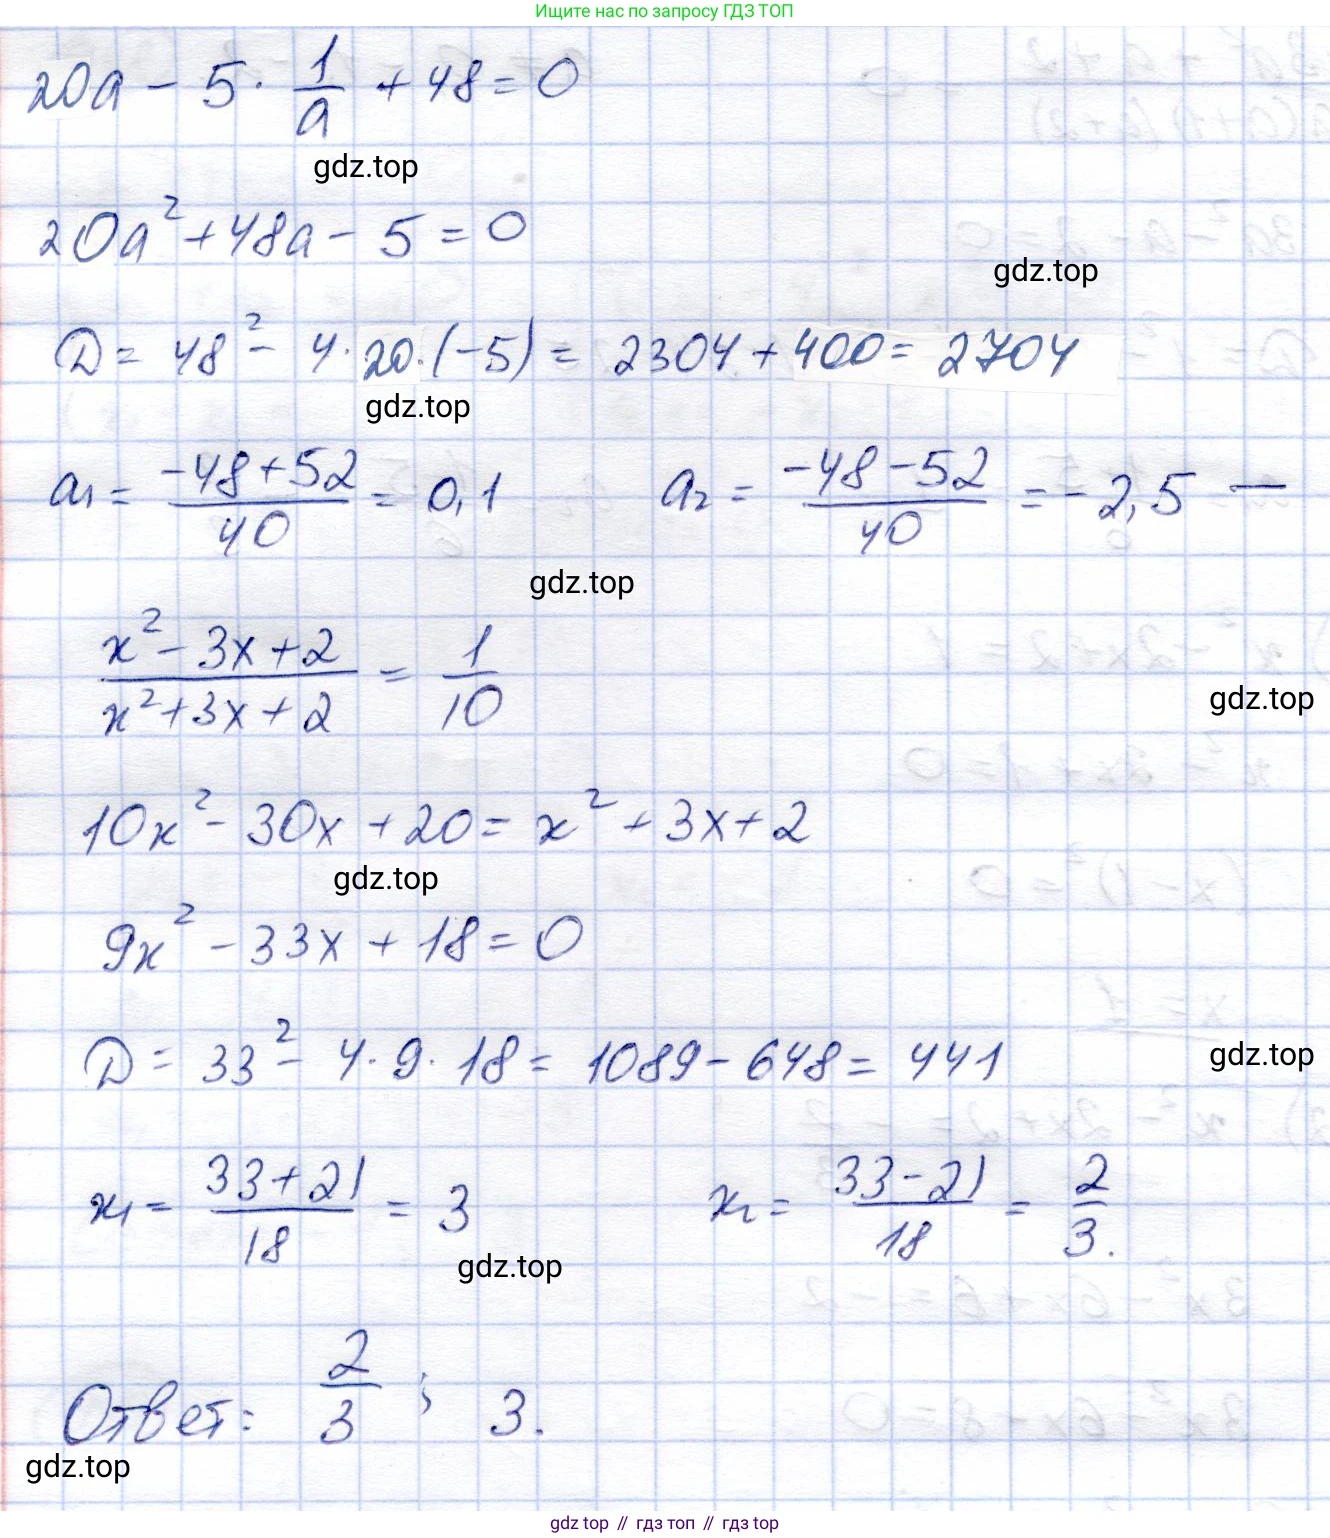 Ищите нас по запросу ГДЗ ТОП
20a - 5 · 1/a + 48 = 0
gdz.top
20a² + 48a - 5 = 0
gdz.top
D = 48² - 4 · 20 · (-5) = 2304 + 400 = 2704
gdz.top
a₁ = (-48 + 52)/40 = 0,1 a₂ = (-48 - 52)/40 = -2,5 —
gdz.top
(x² - 3x + 2)/(x² + 3x + 2) = 1/10
gdz.top
10x² - 30x + 20 = x² + 3x + 2
gdz.top
9x² - 33x + 18 = 0
D = 33² - 4 · 9 · 18 = 1089 - 648 = 441
gdz.top
x₁ = (33 + 21)/18 = 3 x₂ = (33 - 21)/18 = 2/3.
gdz.top
Ответ: 2/3; 3.
gdz.top
gdz top // гдз топ // гдз top